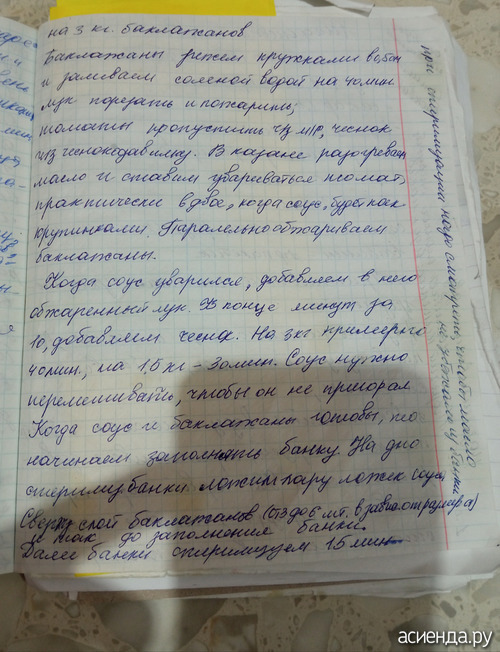 на 3 кг. баклажанов
Баклажаны режем кружками
и заливаем соленой водой на 40 мин
лук порезать и пожарить;
томаты пропустить ч/з м/р, чеснок
ч/з чеснокодавилку. В казане разогреваем
масло и ставим увариваться томат,
практически вдвое, когда соус, будет как
крупинками. Паралельно обжариваем
баклажаны.
Когда соус уварился, добавляем в него
обжаренный лук. В конце минут за
10, добавляем чеснок. На 3 кг примерно
40 мин., на 1,5 кг - 30 мин. Соус нужно
перемешивать, чтобы он не пригорал
Когда соус и баклажаны готовы, то
начинаем заполнять банку. На дно
банки ложим пару ложек соуса
Сверху слой баклажанов (от 3 до 6 шт. в завис. от размера)
и так до заполнения банки.
Далее банки стерилизуем 15 мин
при стерилизации надо смотреть, чтобы масло
не из банки
асиенда.ру